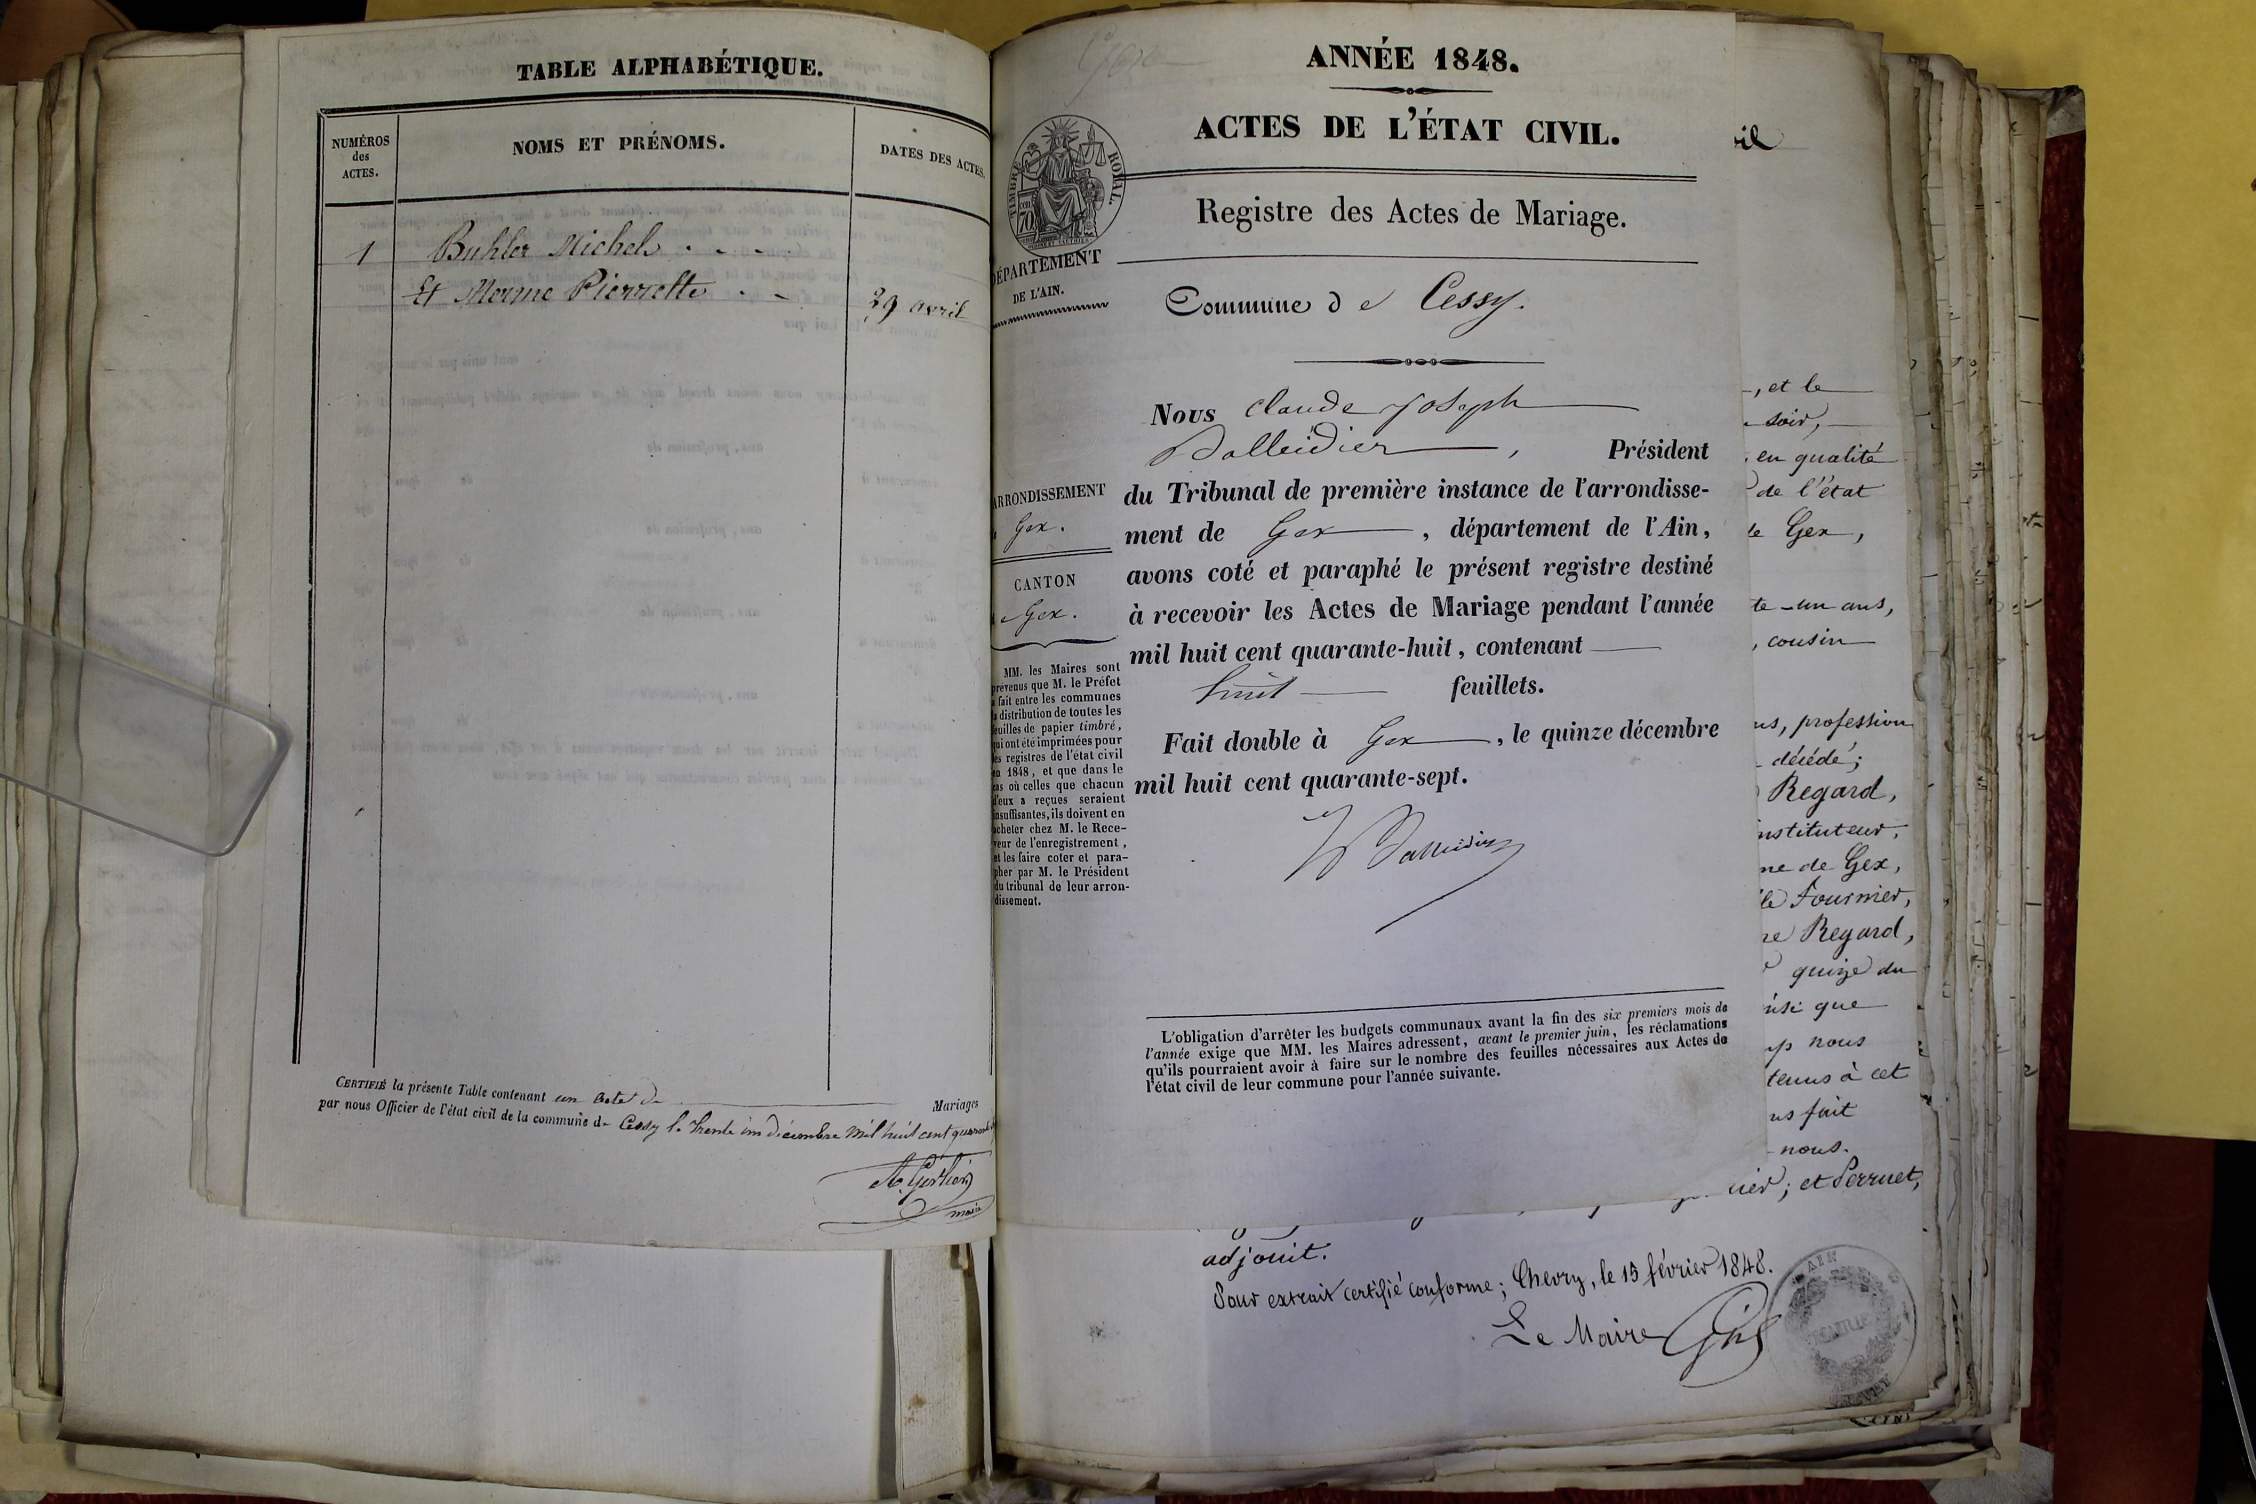 TABLE ALPHABÉTIQUE.
NUMÉROS
des
ACTES.
NOMS ET PRÉNOMS.
DATES DES ACTES.
1
Buhler Michel
Et Merme Pierrette
29 avril
CERTIFIÉ la présente Table contenant un acte de Mariages
par nous Officier de l'état civil de la commune de Cessy le trente un décembre mil huit cent quarante
maire
ANNÉE 1848.
ACTES DE L'ÉTAT CIVIL.
TIMBRE ROYAL.
70
Registre des Actes de Mariage.
DÉPARTEMENT
DE L'AIN.
Commune de Cessy.
ARRONDISSEMENT
Gex.
CANTON
de Gex.
MM. les Maires sont
prévenus que M. le Préfet
a fait entre les communes
la distribution de toutes les
feuilles de papier timbré,
qui ont été imprimées pour
les registres de l'état civil
en 1848, et que dans le
cas où celles que chacun
d'eux a reçues seraient
insuffisantes, ils doivent en
acheter chez M. le Rece-
veur de l'enregistrement,
et les faire coter et para-
pher par M. le Président
du tribunal de leur arron-
dissement.
Nous Claude Joseph
Balleidier, Président
du Tribunal de première instance de l'arrondisse-
ment de Gex, département de l'Ain,
avons coté et paraphé le présent registre destiné
à recevoir les Actes de Mariage pendant l'année
mil huit cent quarante-huit, contenant
huit feuillets.
Fait double à Gex, le quinze décembre
mil huit cent quarante-sept.
Balleidier
L'obligation d'arrêter les budgets communaux avant la fin des six premiers mois de
l'année exige que MM. les Maires adressent, avant le premier juin, les réclamations
qu'ils pourraient avoir à faire sur le nombre des feuilles nécessaires aux Actes de
l'état civil de leur commune pour l'année suivante.
, et le
soir,
en qualité
de l'état
de Gex,
te-un ans,
, cousin
us, profession
décédé;
Regard,
instituteur,
ne de Gex,
Fournier,
re Regard,
quinze du
que
nous
tenus à cet
us fait
nous.
; et Perruet,
adjoint.
Pour extrait certifié conforme; Chevry, le 15 février 1848.
Le Maire
AIN
MAIRIE